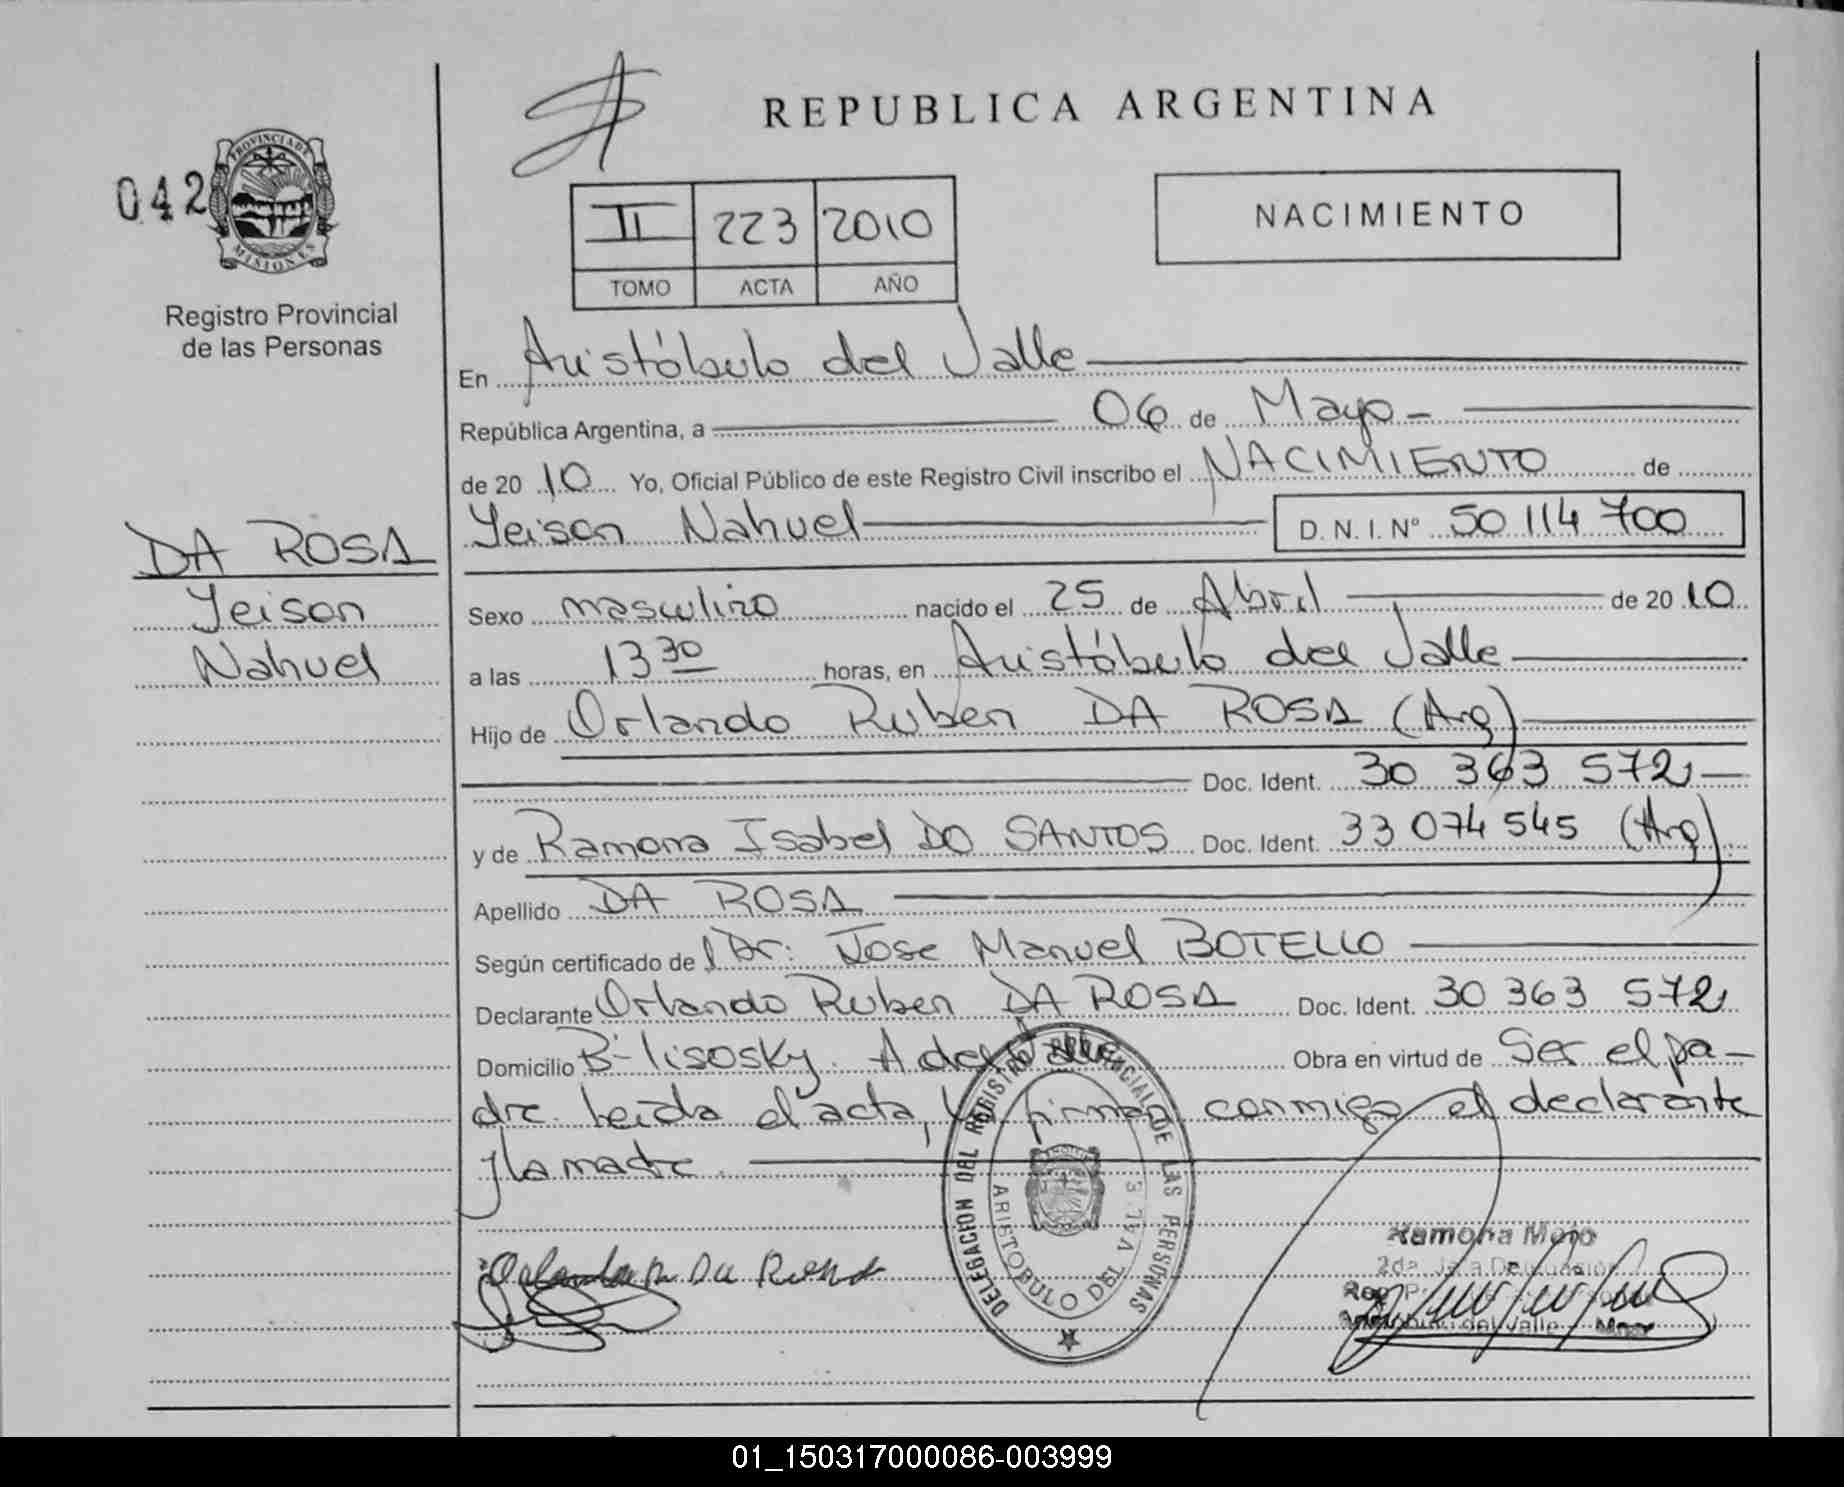 REPUBLICA ARGENTINA
042
PROVINCIA DE
MISIONES
Registro Provincial
de las Personas
II 223 2010
TOMO ACTA AÑO
NACIMIENTO
En Aristóbulo del Valle
República Argentina, a 06 de Mayo
de 20 10 Yo, Oficial Público de este Registro Civil inscribo el NACIMIENTO de
DA ROSA
Yeison
Nahuel
Yeison Nahuel D. N. I. Nº 50 114 700
Sexo masculino nacido el 25 de Abril de 20 10
a las 13 30 horas, en Aristóbulo del Valle
Hijo de Orlando Ruben DA ROSA (Arg)
Doc. Ident. 30 363 572
y de Ramona Isabel DO SANTOS Doc. Ident. 33 074 545 (Arg)
Apellido DA ROSA
Según certificado de Dr: Jose Manuel BOTELLO
Declarante Orlando Ruben DA ROSA Doc. Ident. 30 363 572
Domicilio B- lisosky. A del Valle Obra en virtud de Ser el pa-
dre. Leida el acta, firman conmigo el declarante
y la madre.
DELEGACION DEL REGISTRO PROVINCIAL DE LAS PERSONAS
ARISTOBULO DEL VALLE
Ramona
2da. Jefa
del Valle
01_150317000086-003999